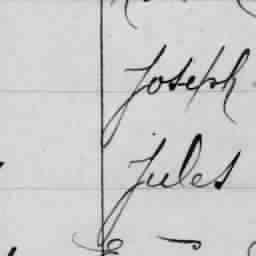 Joseph
Jules